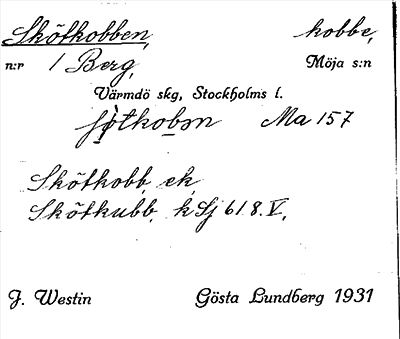 Skötkobben, kobbe,
n:r 1 Berg, Möja s:n
Värmdö skg, Stockholms l.
Ma 157
Skötkobb, ek,
Skötkubb, k Sj 618.V,
J. Westin Gösta Lundberg 1931